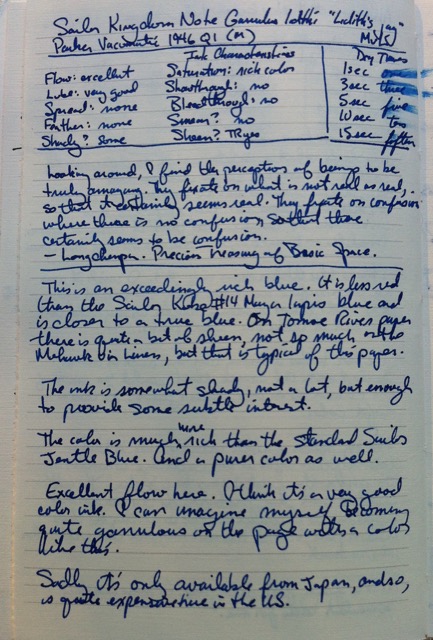 Sailor Kingdom Note Garrulus lidthi "Lidth's Jay"
Parker Vacumatic 1946 Q1 (M) Misty)
Ink Characteristics Dry Times
Flow: excellent Saturation: rich color 1 sec one
Lube: very good Showthrough: no 3 sec three
Spread: none Bleedthrough: no 5 sec five
Feather: none Smear? no 10 sec ten
Shady? some Sheen? TRyes 15 sec fifteen
Looking around, I find the perception of beings to be
truly amazing. They fixate on what is not real as real,
so that it certainly seems real. They fixate on confusion
where there is no confusion, so that there
certainly seems to be confusion.
- Longchenpa. Precious Treasury of Basic Space.
This is an exceedingly rich blue. It is less red
than the Sailor Kobe #14 lapis blue and
is closer to a true blue. On Tomoe River paper
there is quite a bit of sheen, not so much on the
Mohawk via Linen, but that is typical of this paper.
The ink is somewhat shady, not a lot, but enough
to provide some subtle interest.
The color is much more rich than the standard Sailor
Jentle Blue. And a purer color as well.
Excellent flow here. I think it's a very good
color ink. I can imagine myself becoming
quite garrulous on the page with a color
like this.
Sadly it's only available from Japan, and so,
is quite expensive here in the US.